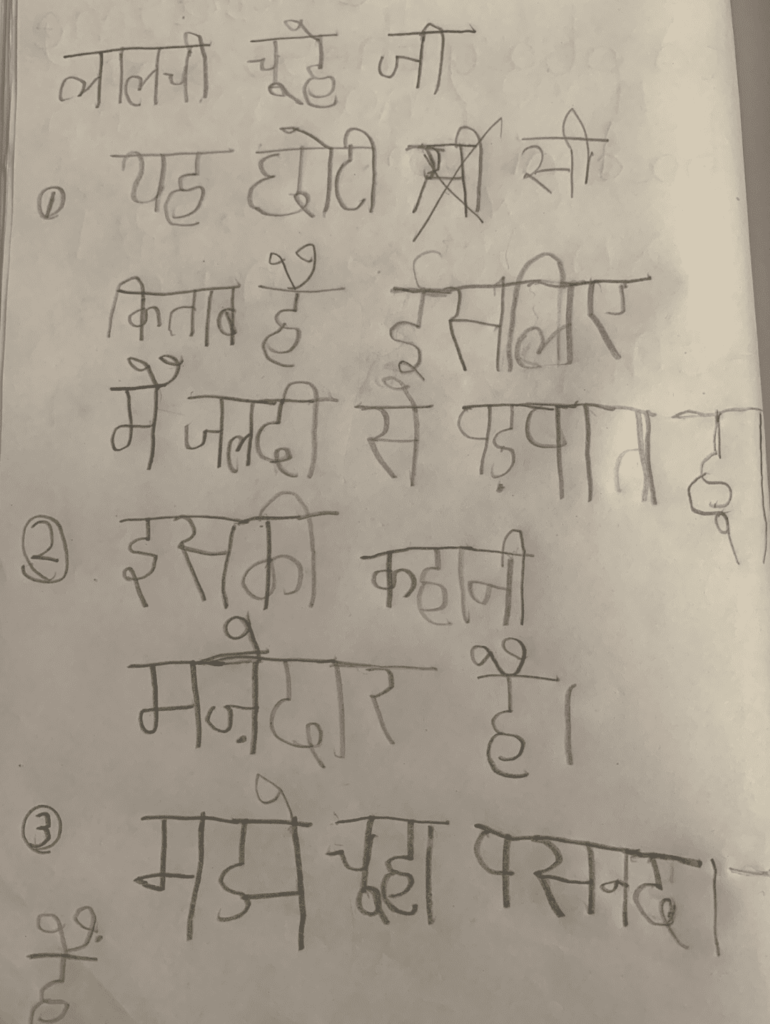 लालची चूहे जी
① यह छोटी सी
किताब है ईसलिए
मै जलदी से पड़पात हू।
② इसकी कहानी
मज़ेदार है।
③ मझे चूहा पसनद।
हैं